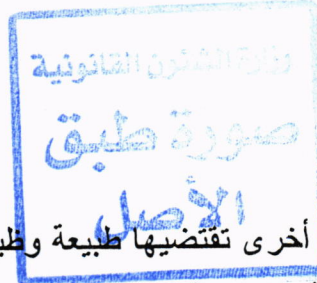 وزارة الشئون القانونية
صورة طبق
الأصل
أخرى تقتضيها طبيعة